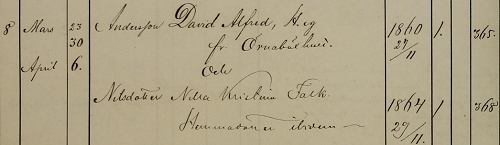 8 Mars 23 Andersson David Alfred, H. eg 1860 1. 365.
30 fr Örnabäckhus. 27/11
April 6. Och
Nilsdotter Nilla Kristina Falk. 1864 1 368
Hemmadotter ibidem — 29/11.